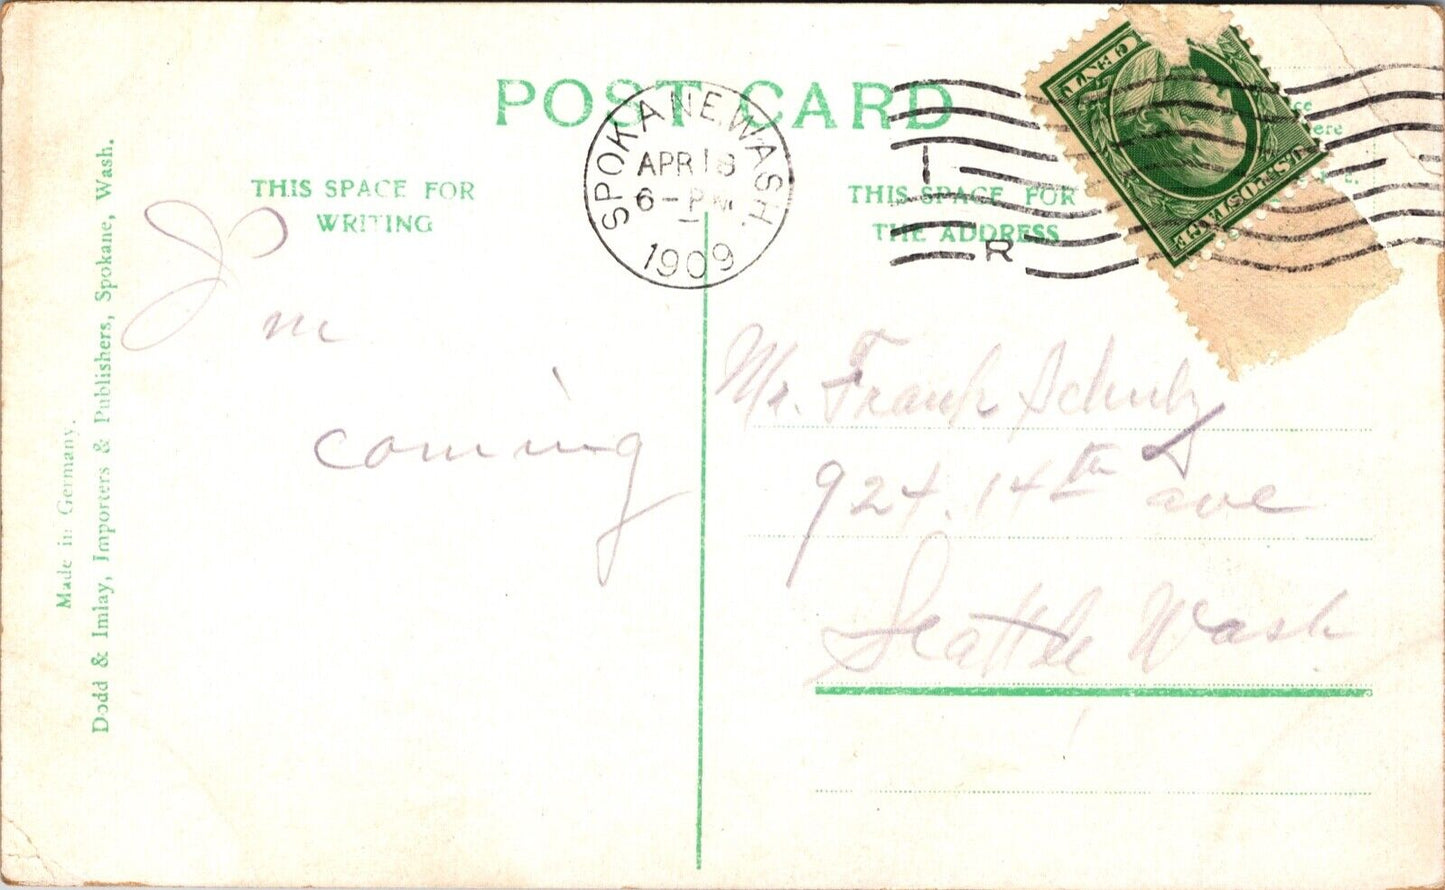 POST CARD
SPOKANE, WASH.
APR 18
6-PM
1909
THIS SPACE FOR
WRITING
THIS SPACE FOR
THE ADDRESS
R
U.S. POSTAGE
I'm
coming
Mr. Frank Schulz
924. 14th ave
Seattle Wash
Made in Germany.
Dodd & Imlay, Importers & Publishers, Spokane, Wash.